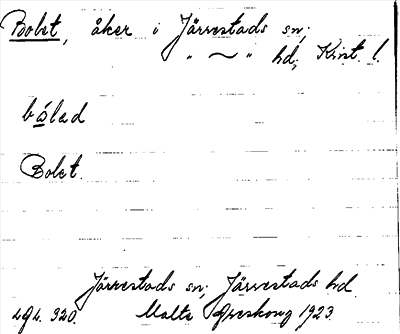 Bolet, åker i Järrestads sn;
" ~ " hd, Krist. l.
bólad
Bolet.
Järrestads sn; Järrestads hd.
Malte Areskoug 1923.